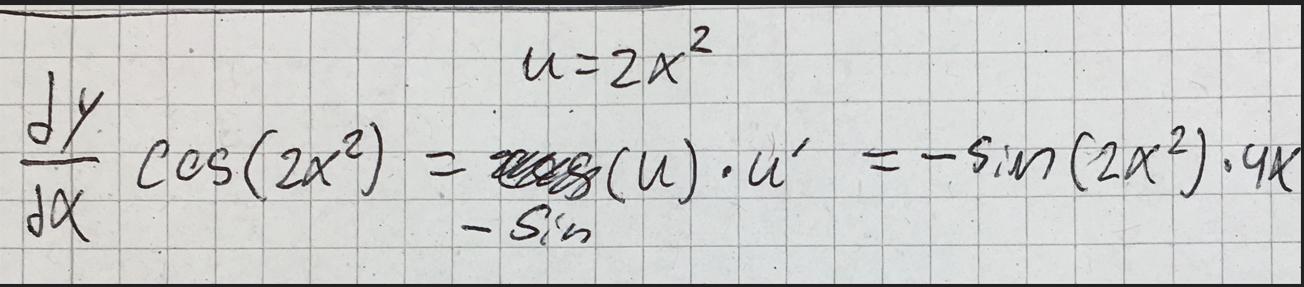 u = 2x²
dy/dx cos(2x²) = (u) · u' = - sin(2x²) · 4x
- sin